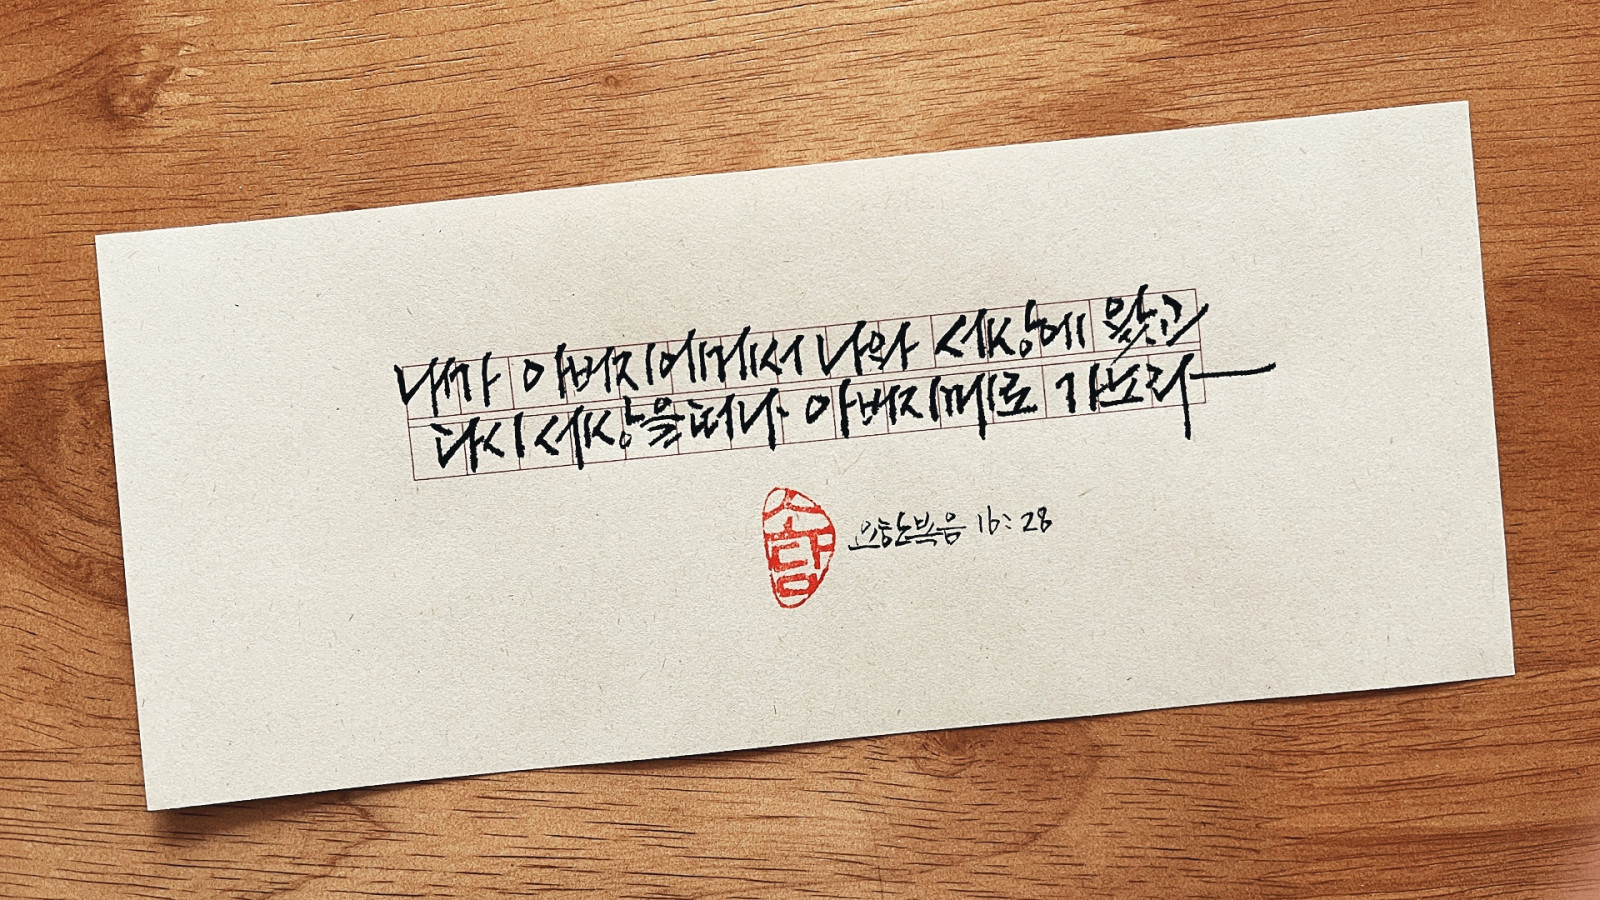 내가 아버지에게서 나와 세상에 왔고
다시 세상을 떠나 아버지께로 가노라
소담
요한복음 16:28